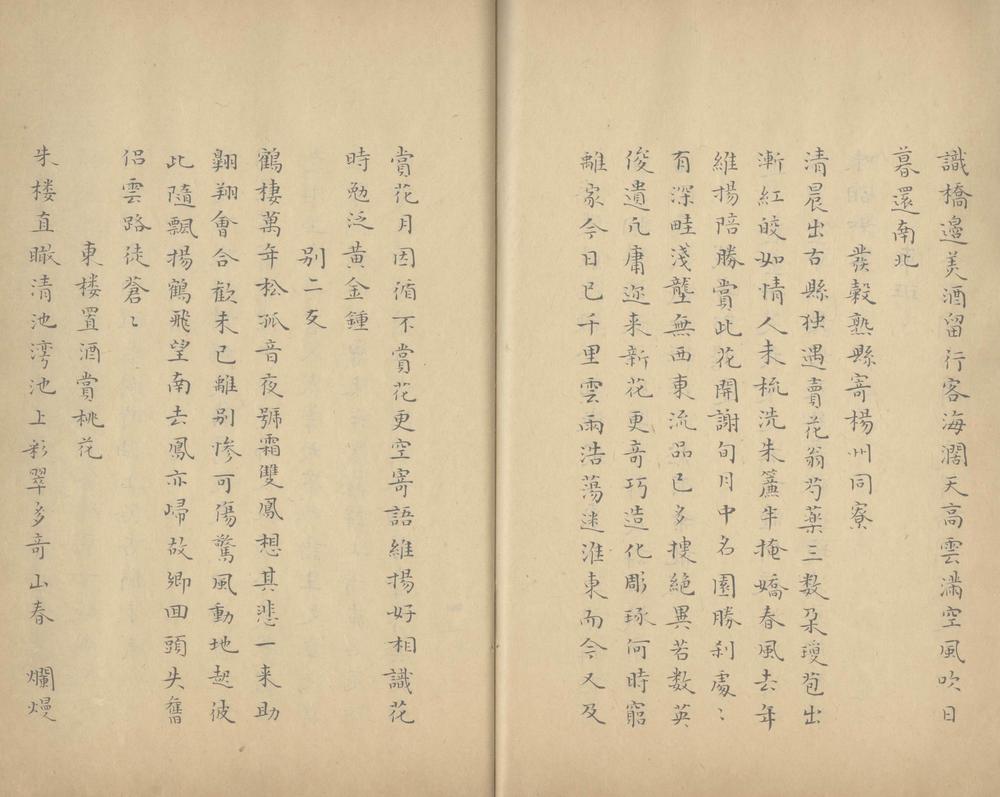 識橋邉美酒留行客海濶天髙雲滿空風吹日
暮還南北
發穀熟縣寄楊州同寮
清晨出古縣独遇賣花翁芍藥三数朶瓊苞出
漸紅皎如情人未梳洗朱簾半掩嬌春風去年
維揚陪勝賞此花開謝旬月中名園勝刹處〻
有深畦淺壟無西東流品已多搜絶異若数英
俊遺凢庸迩来新花更竒巧造化彫琢何時窮
離家今日已千里雲雨浩蕩迷淮東而今又及
賞花月因循不賞花更空寄語維揚好相識花
時勉泛黄金鍾
别二友
鶴棲萬年松孤音夜號霜雙鳳想其悲一来助
翺翔會合歡未已離别惨可傷驚風動地起彼
此隨飄揚鶴飛望南去鳳亦歸故鄉回頭失舊
侣雲路徒蒼〻
東楼置酒賞桃花
朱楼直瞰清池湾池上彩翠多竒山春 爛熳